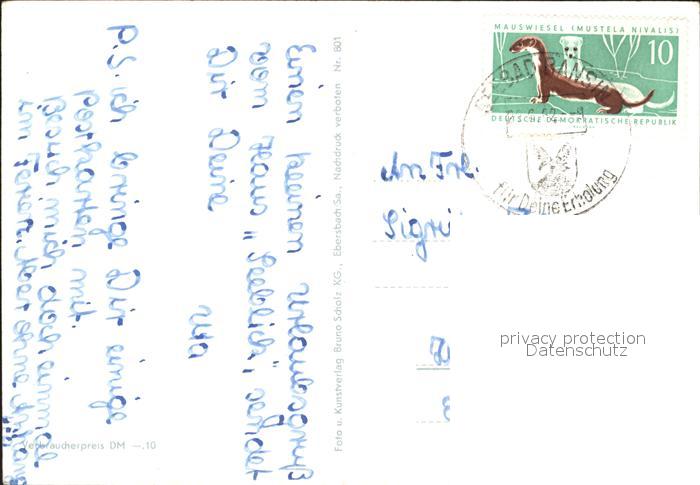 MAUSWIESEL (MUSTELA NIVALIS)
10
DEUTSCHE DEMOKRATISCHE REPUBLIK
BAD
für Deine Erholung
An Frl.
Sigri
privacy protection
Datenschutz
Foto u. Kunstverlag Bruno Scholz KG., Ebersbach Sa., Nachdruck verboten Nr. 801
Einen kleinen Urlaubsgruß
vom Haus „Seeblick", sendet
Dir Deine
Uta
P.S. ich bringe Dir einige
Postkarten mit.
Besuch mich doch einmal
im Ferien. Aber ohne
Verbraucherpreis DM —,10